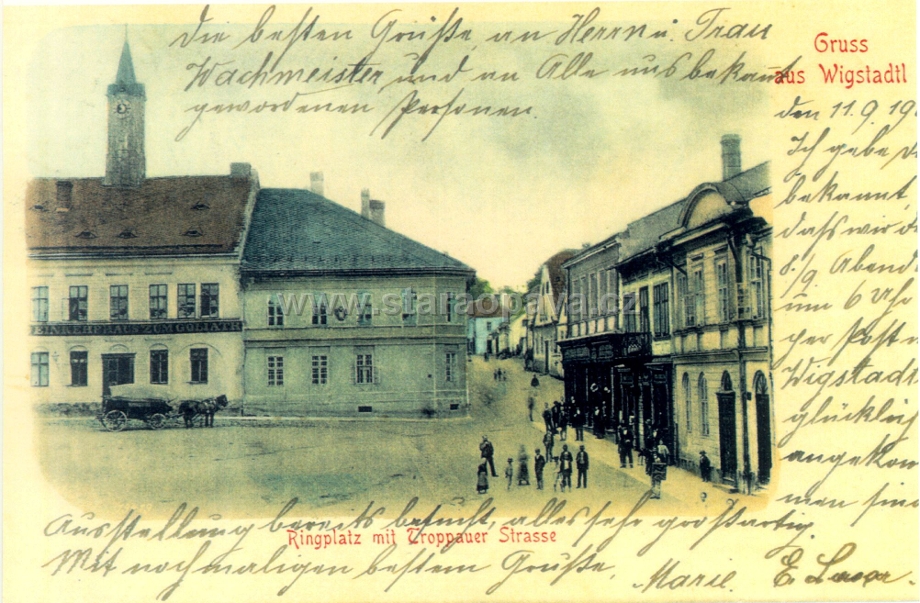 Die besten Grüße an Herrn u. Frau
Wachmeister und an Alle uns bekannt
gewordenen Personen.
Gruss
aus Wigstadtl
den 11.9.19
Ich gebe
bekannt,
daß wir
8./9 Abend
um 6 Uhr
per Post
Wigstadtl
glücklich
angekom
men sind
EINKEHRHAUS ZUM GOLIATH
www.staraopava.cz
Ausstellung bereits besucht, alles sehr großartig.
Ringplatz mit Troppauer Strasse
Mit nochmaligen bestem Grüße,
Marie.